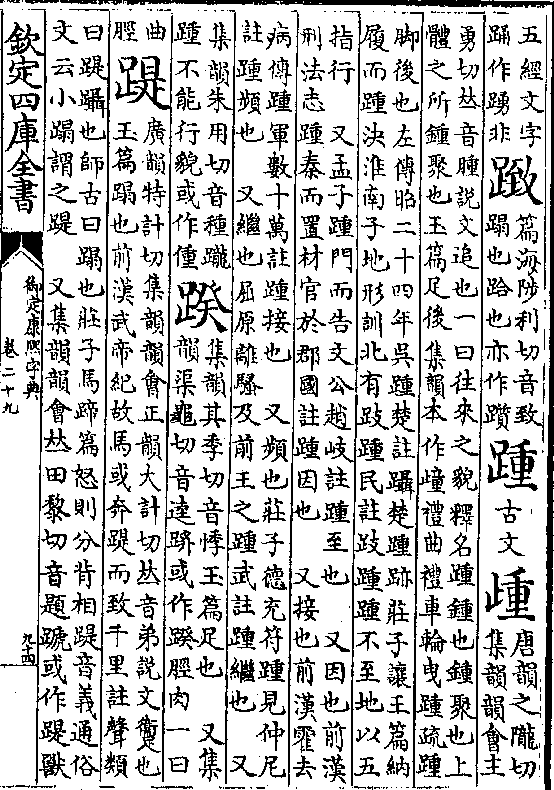 五經文字
踊作踴非
篇海陟利切音致
蹋也跲也亦作躓
踵
古文
歱
唐韻之隴切
集韻韻會主
勇切𠀤音腫說文追也一曰往來之貌釋名踵鍾也鍾聚也上
體之所鍾聚也玉篇足後集韻本作 禮曲禮車輪曳踵疏踵
脚後也左傳昭二十四年吳踵楚註躡楚踵跡莊子讓王篇納
履而踵決淮南子地形訓北有跂踵民註跂踵踵不至地以五
指行 又孟子踵門而告文公趙岐註踵至也 又因也前漢
刑法志踵秦而置材官於郡國註踵因也 又接也前漢霍去
病傳踵軍數十萬註踵接也 又頻也莊子德充符踵見仲尼
註踵頻也 又繼也屈原離騷及前王之踵武註踵繼也 又
集韻朱用切音種躘
踵不能行貌或作偅
䠏
集韻其季切音悸玉篇足也 又集
韻渠龜切音逵 或作䠏脛肉一曰
曲
脛
踶
廣韻特計切集韻韻會正韻大計切𠀤音弟說文躗也
玉篇蹋也前漢武帝紀故馬或奔踶而致千里註聲類
曰踶躡也師古曰蹋也莊子馬蹄篇怒則分背相踶音義通俗
文云小蹋謂之踶 又集韻韻會𠀤田黎切音題蹏或作踶獸
欽定四庫全書
御定康熙字典
卷二十九
九十四